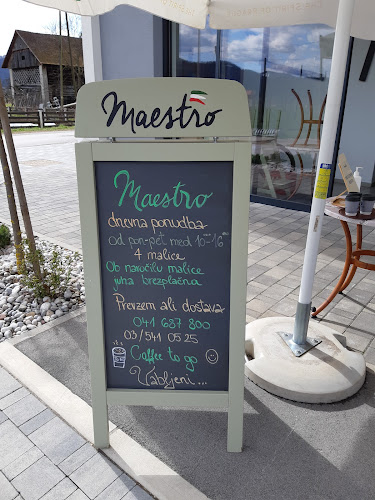 Maestro
Maestro
dnevna ponudba
od pon-pet med 10⁰⁰-16⁰⁰
4 malice
Ob naročilu malice
juha brezplačna
Prevzem ali dostava
041 687 800
03/541 05 25
Coffee to go
Vabljeni...